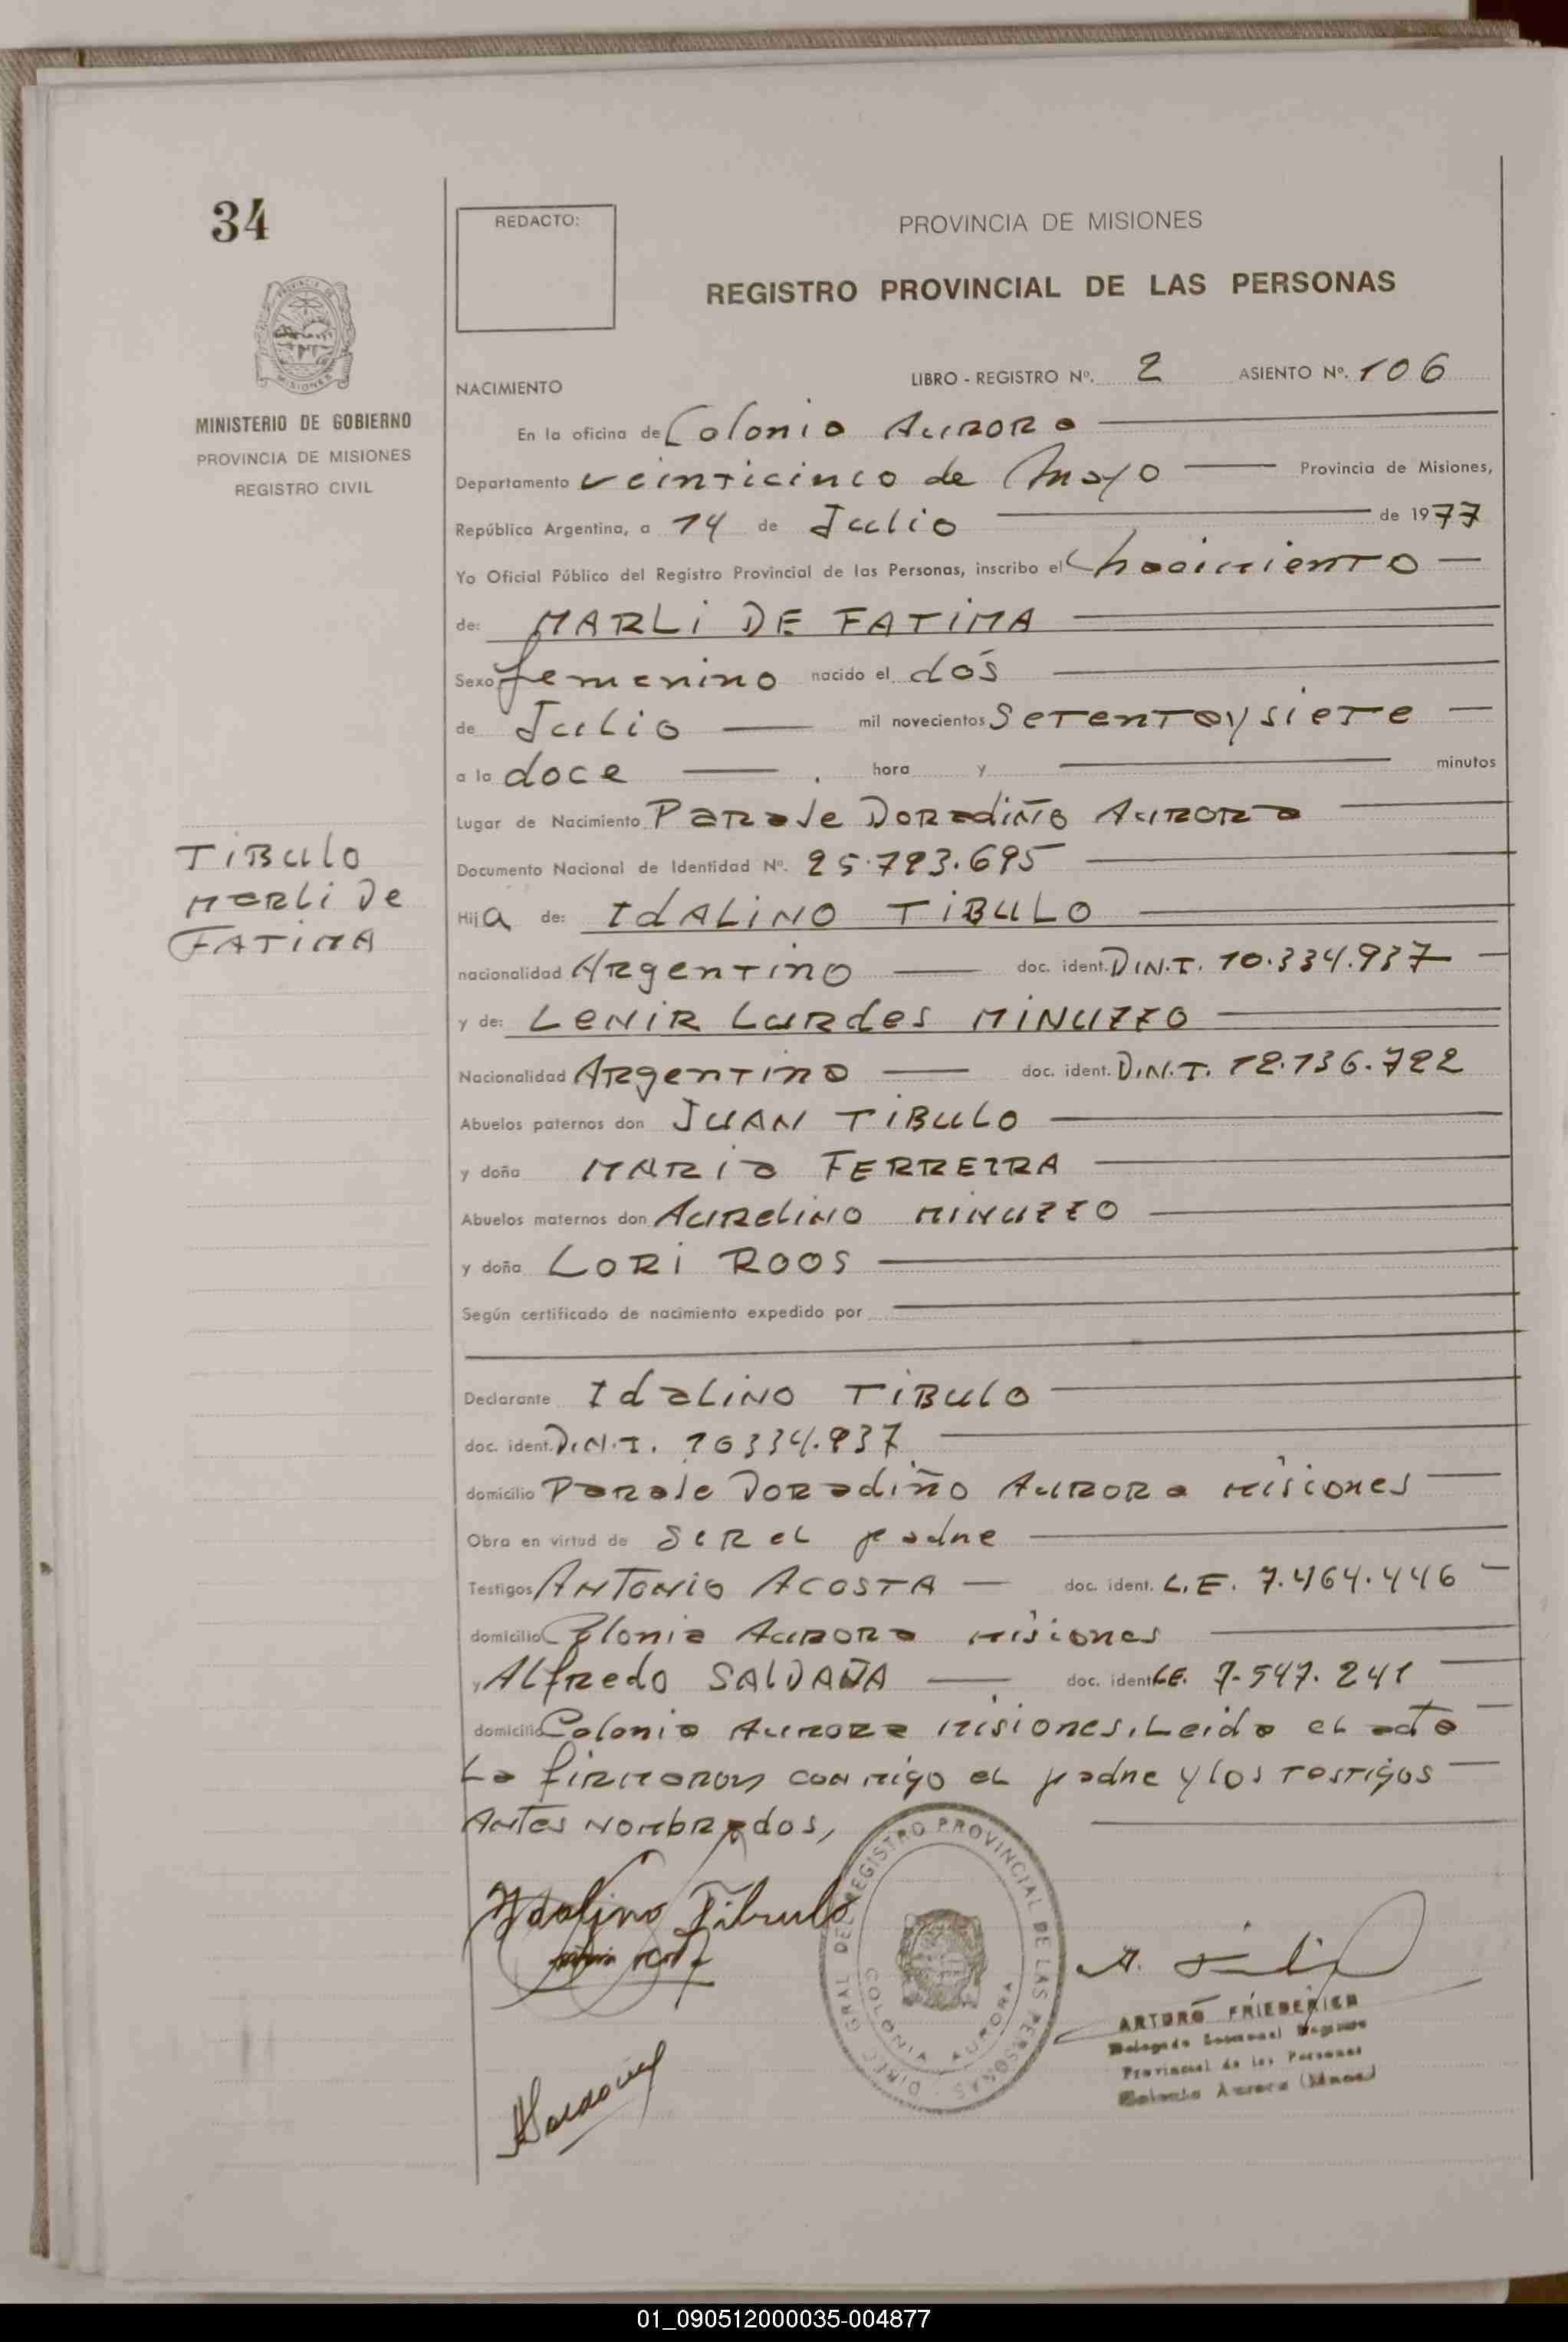 34
REDACTO:
PROVINCIA DE MISIONES
REGISTRO PROVINCIAL DE LAS PERSONAS
MINISTERIO DE GOBIERNO
PROVINCIA DE MISIONES
REGISTRO CIVIL
NACIMIENTO LIBRO - REGISTRO Nº. 2 ASIENTO Nº. 106
En la oficina de Colonia AURORA
Departamento veinticinco de Mayo Provincia de Misiones,
República Argentina, a 14 de Julio de 1977
Yo Oficial Público del Registro Provincial de las Personas, inscribo el nacimiento
de: MARLI DE FATIMA
Sexo femenino nacido el dós
de Julio mil novecientos Setentaysiete
a la doce hora y minutos
Lugar de Nacimiento Paraje Doradiño Aurora
TIBULO
MARLI De
FATIMA
Documento Nacional de Identidad Nº. 25.793.695
Hija de: IdALINO TIBULO
nacionalidad ARgentino doc. ident. D.N.I. 10.334.937
y de: LENIR LURdes MINUZZO
Nacionalidad ARgentina doc. ident. D.N.I. 12.136.722
Abuelos paternos don JUAN TIBULO
y doña MARIA FERREIRA
Abuelos maternos don AURELINO MINUZZO
y doña LORI ROOS
Según certificado de nacimiento expedido por
Declarante IdaLINO TIBULO
doc. ident. D.N.I. 10334.937
domicilio Paraje Doradiño AURORA Misiones
Obra en virtud de SER eL padre
Testigos ANTONIO ACOSTA doc. ident. L.E. 7.464.446
domicilio Colonia AURORA Misiones
y ALfredo SALDAÑA doc. ident. LE. 7.547.241
domicilio Colonia Aurora Misiones, Leida el acta
La firmaron conmigo el padre y los testigos
Antes Nombrados,
Idalino Tibulo
DIREC. GRAL DEL REGISTRO PROVINCIAL DE LAS PERSONAS
COLONIA AURORA
ARTURO FRIEDERICH
Delegado Seccional Registro
Provincial de las Personas
Colonia Aurora (Mnes)
01_090512000035-004877